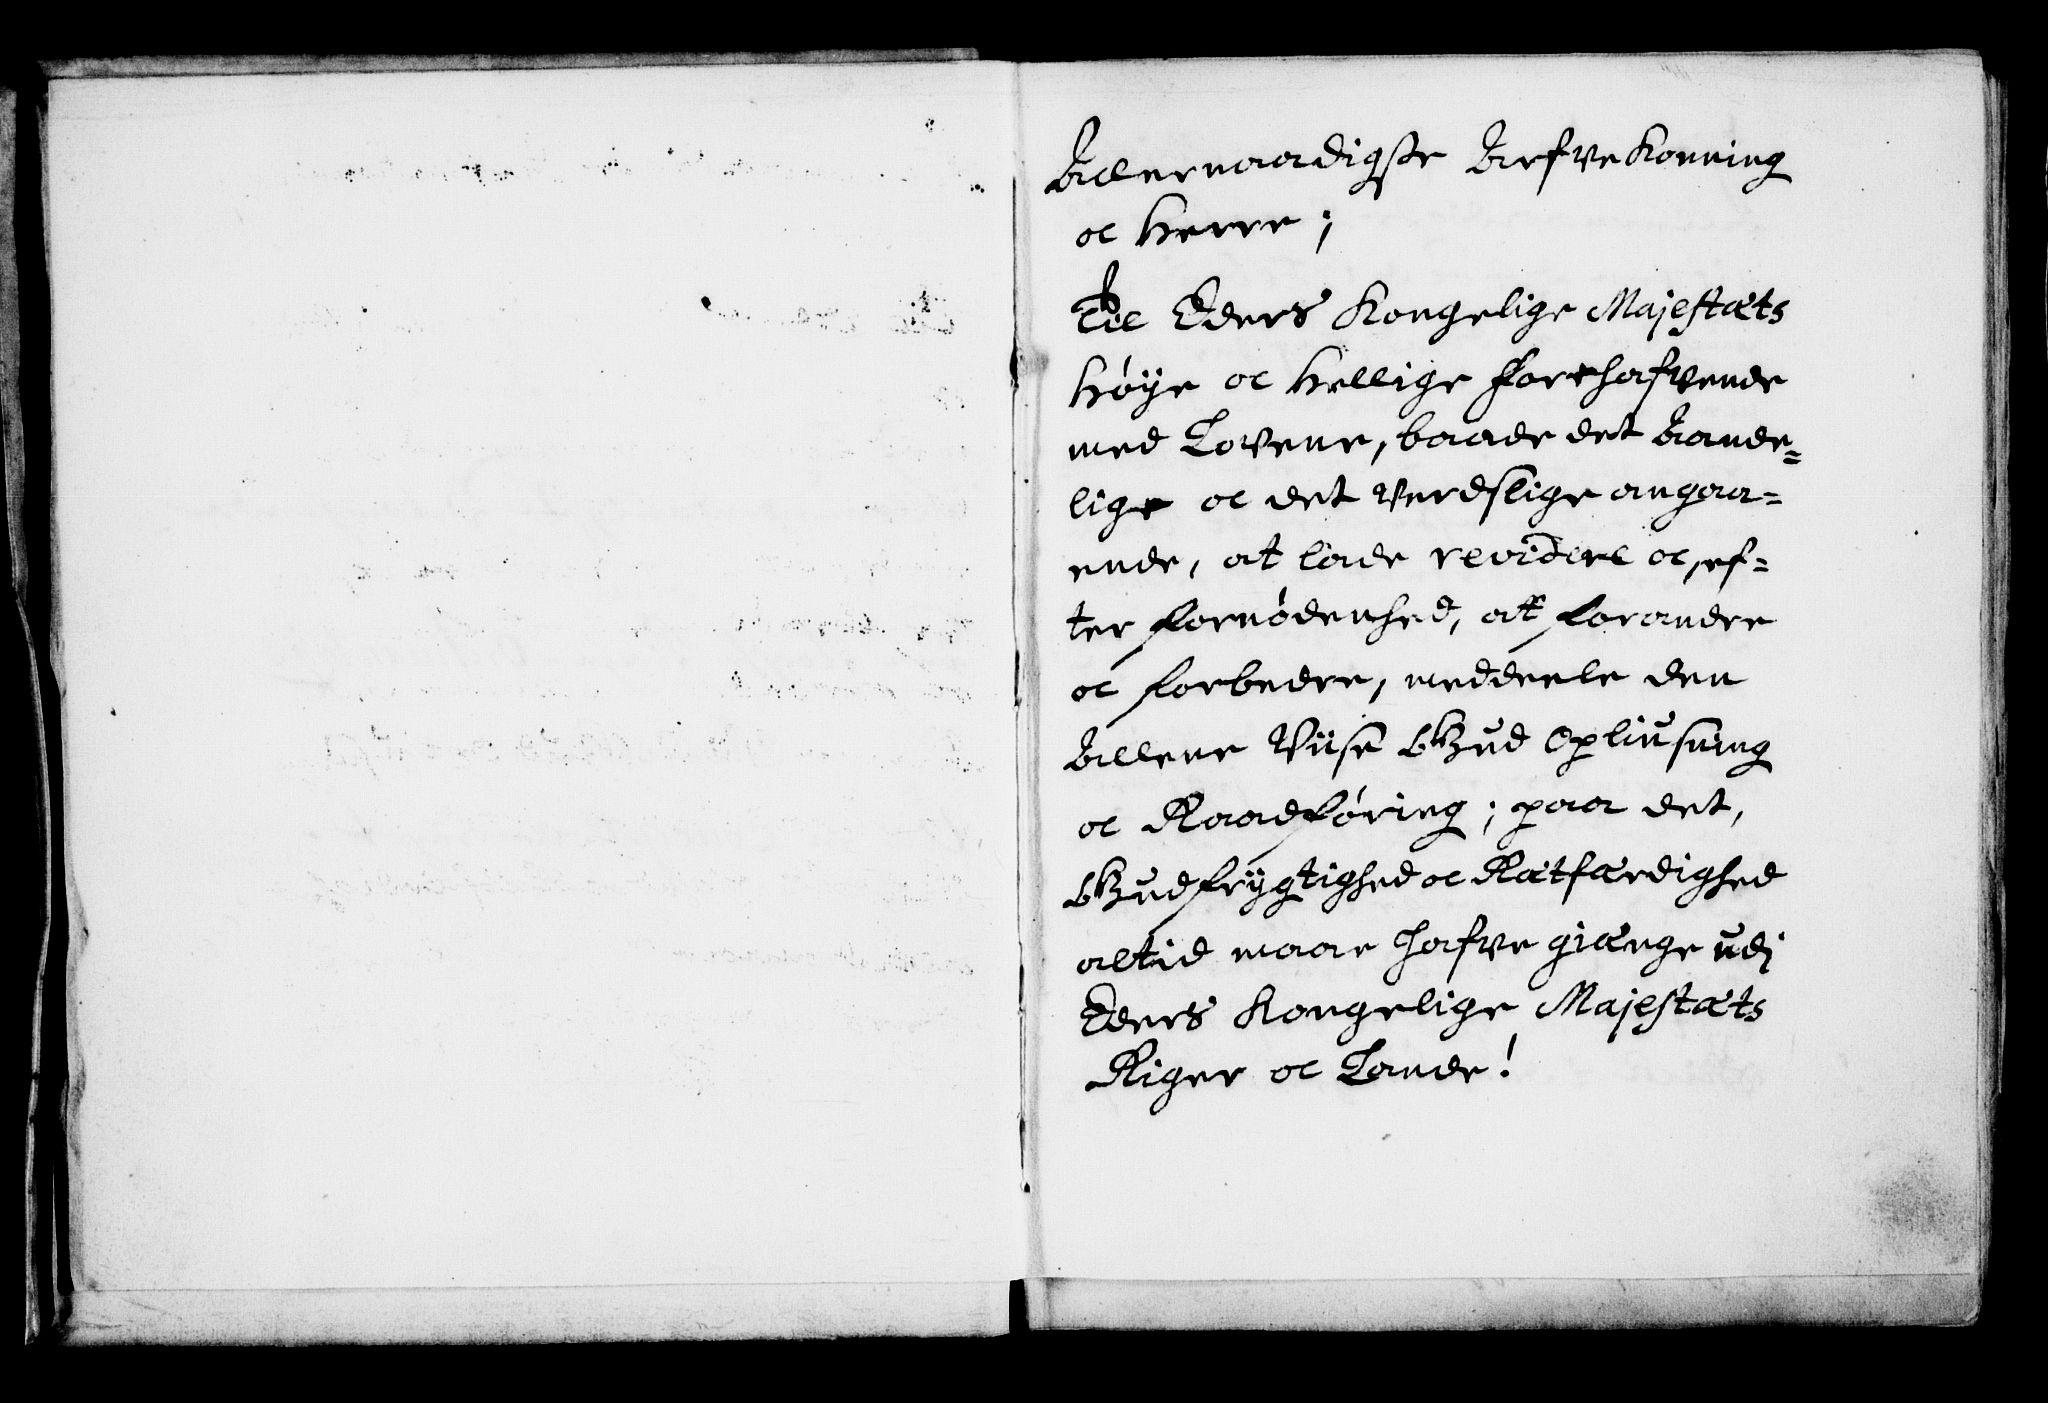 Allernaadigste Arfve Konning
oc Herre;
Til Eders Kongelige Majestæts
Høÿe oc Hellige forehafvende
med Lovene, baade det Aande=
lige oc det Verdslige angaa=
ende, at lade revidere oc, ef=
ter fornødenhed, at forandre
oc forbedre, meddeele den
Allene Viise Gud Opliusning
oc Raadføring; paa det,
Gudfrÿgtighed oc Rætfærdighed
altid maae hafve giænge udj
Eders Kongelige Majestæts
Riger oc Lande!